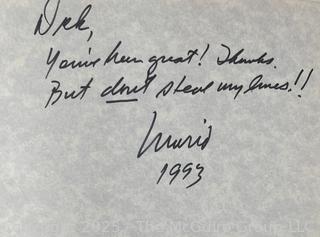 Dick,
You've been great! Thanks.
But don't steal my lines!!
1993
© 2025 - The McGuire Group - LLC